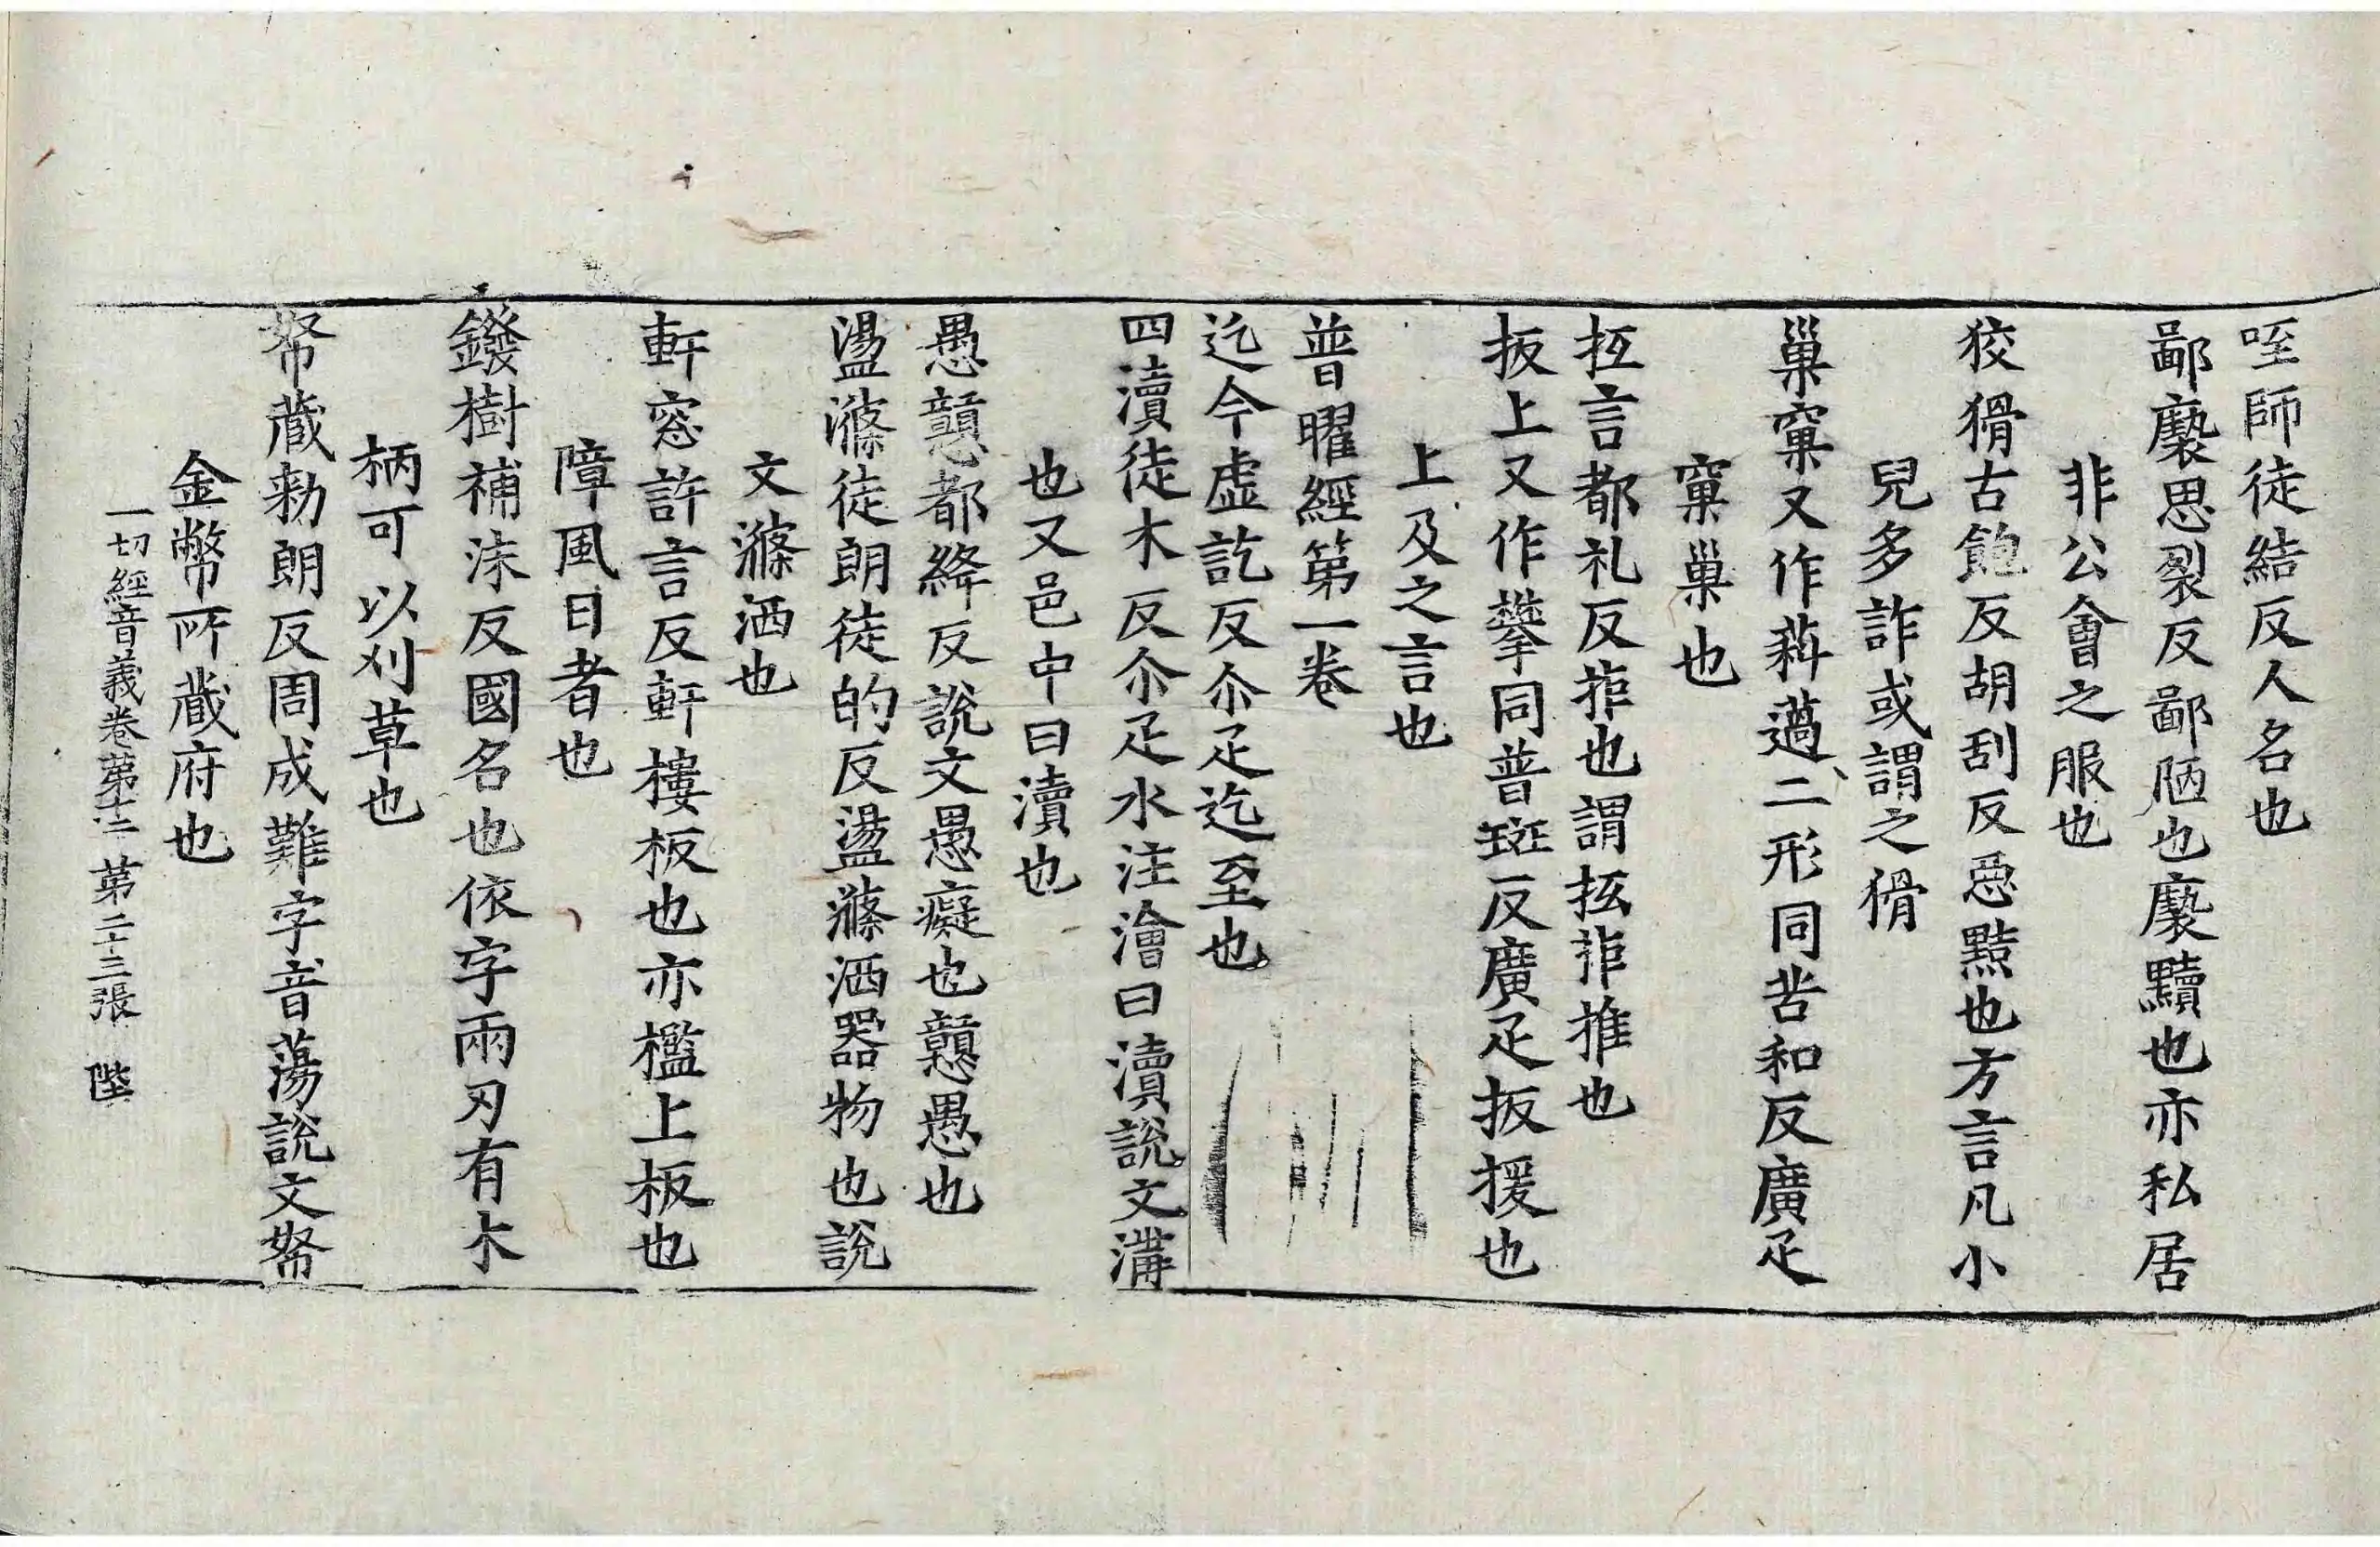 咥師徒結反人名也
鄙褻思裂反鄙陋也褻黷也亦私居
非公會之服也
狡猾古飽反胡刮反惡黠也方言凡小
兒多詐或謂之猾
巢窠又作薖二形同苦和反廣疋
窠巢也
抵言都礼反拒也謂抵拒推也
扳上又作攀同普班反廣疋扳援也
上及之言也
普曜經第一卷
迄今虛訖反尒疋迄至也
四瀆徒木反尒疋水注澮曰瀆說文溝
也又邑中曰瀆也
愚戇都絳反說文愚癡也戇愚也
盪滌徒朗徒的反盪滌洒器物也說
文滌洒也
軒窓許言反軒樓板也亦檻上板也
障風日者也
鏺樹補沫反國名也依字兩刃有木
柄可以刈草也
帑藏勑朗反周成難字音蕩說文帑
金幣所藏府也
一切經音義卷第十二 第二十三張 陛